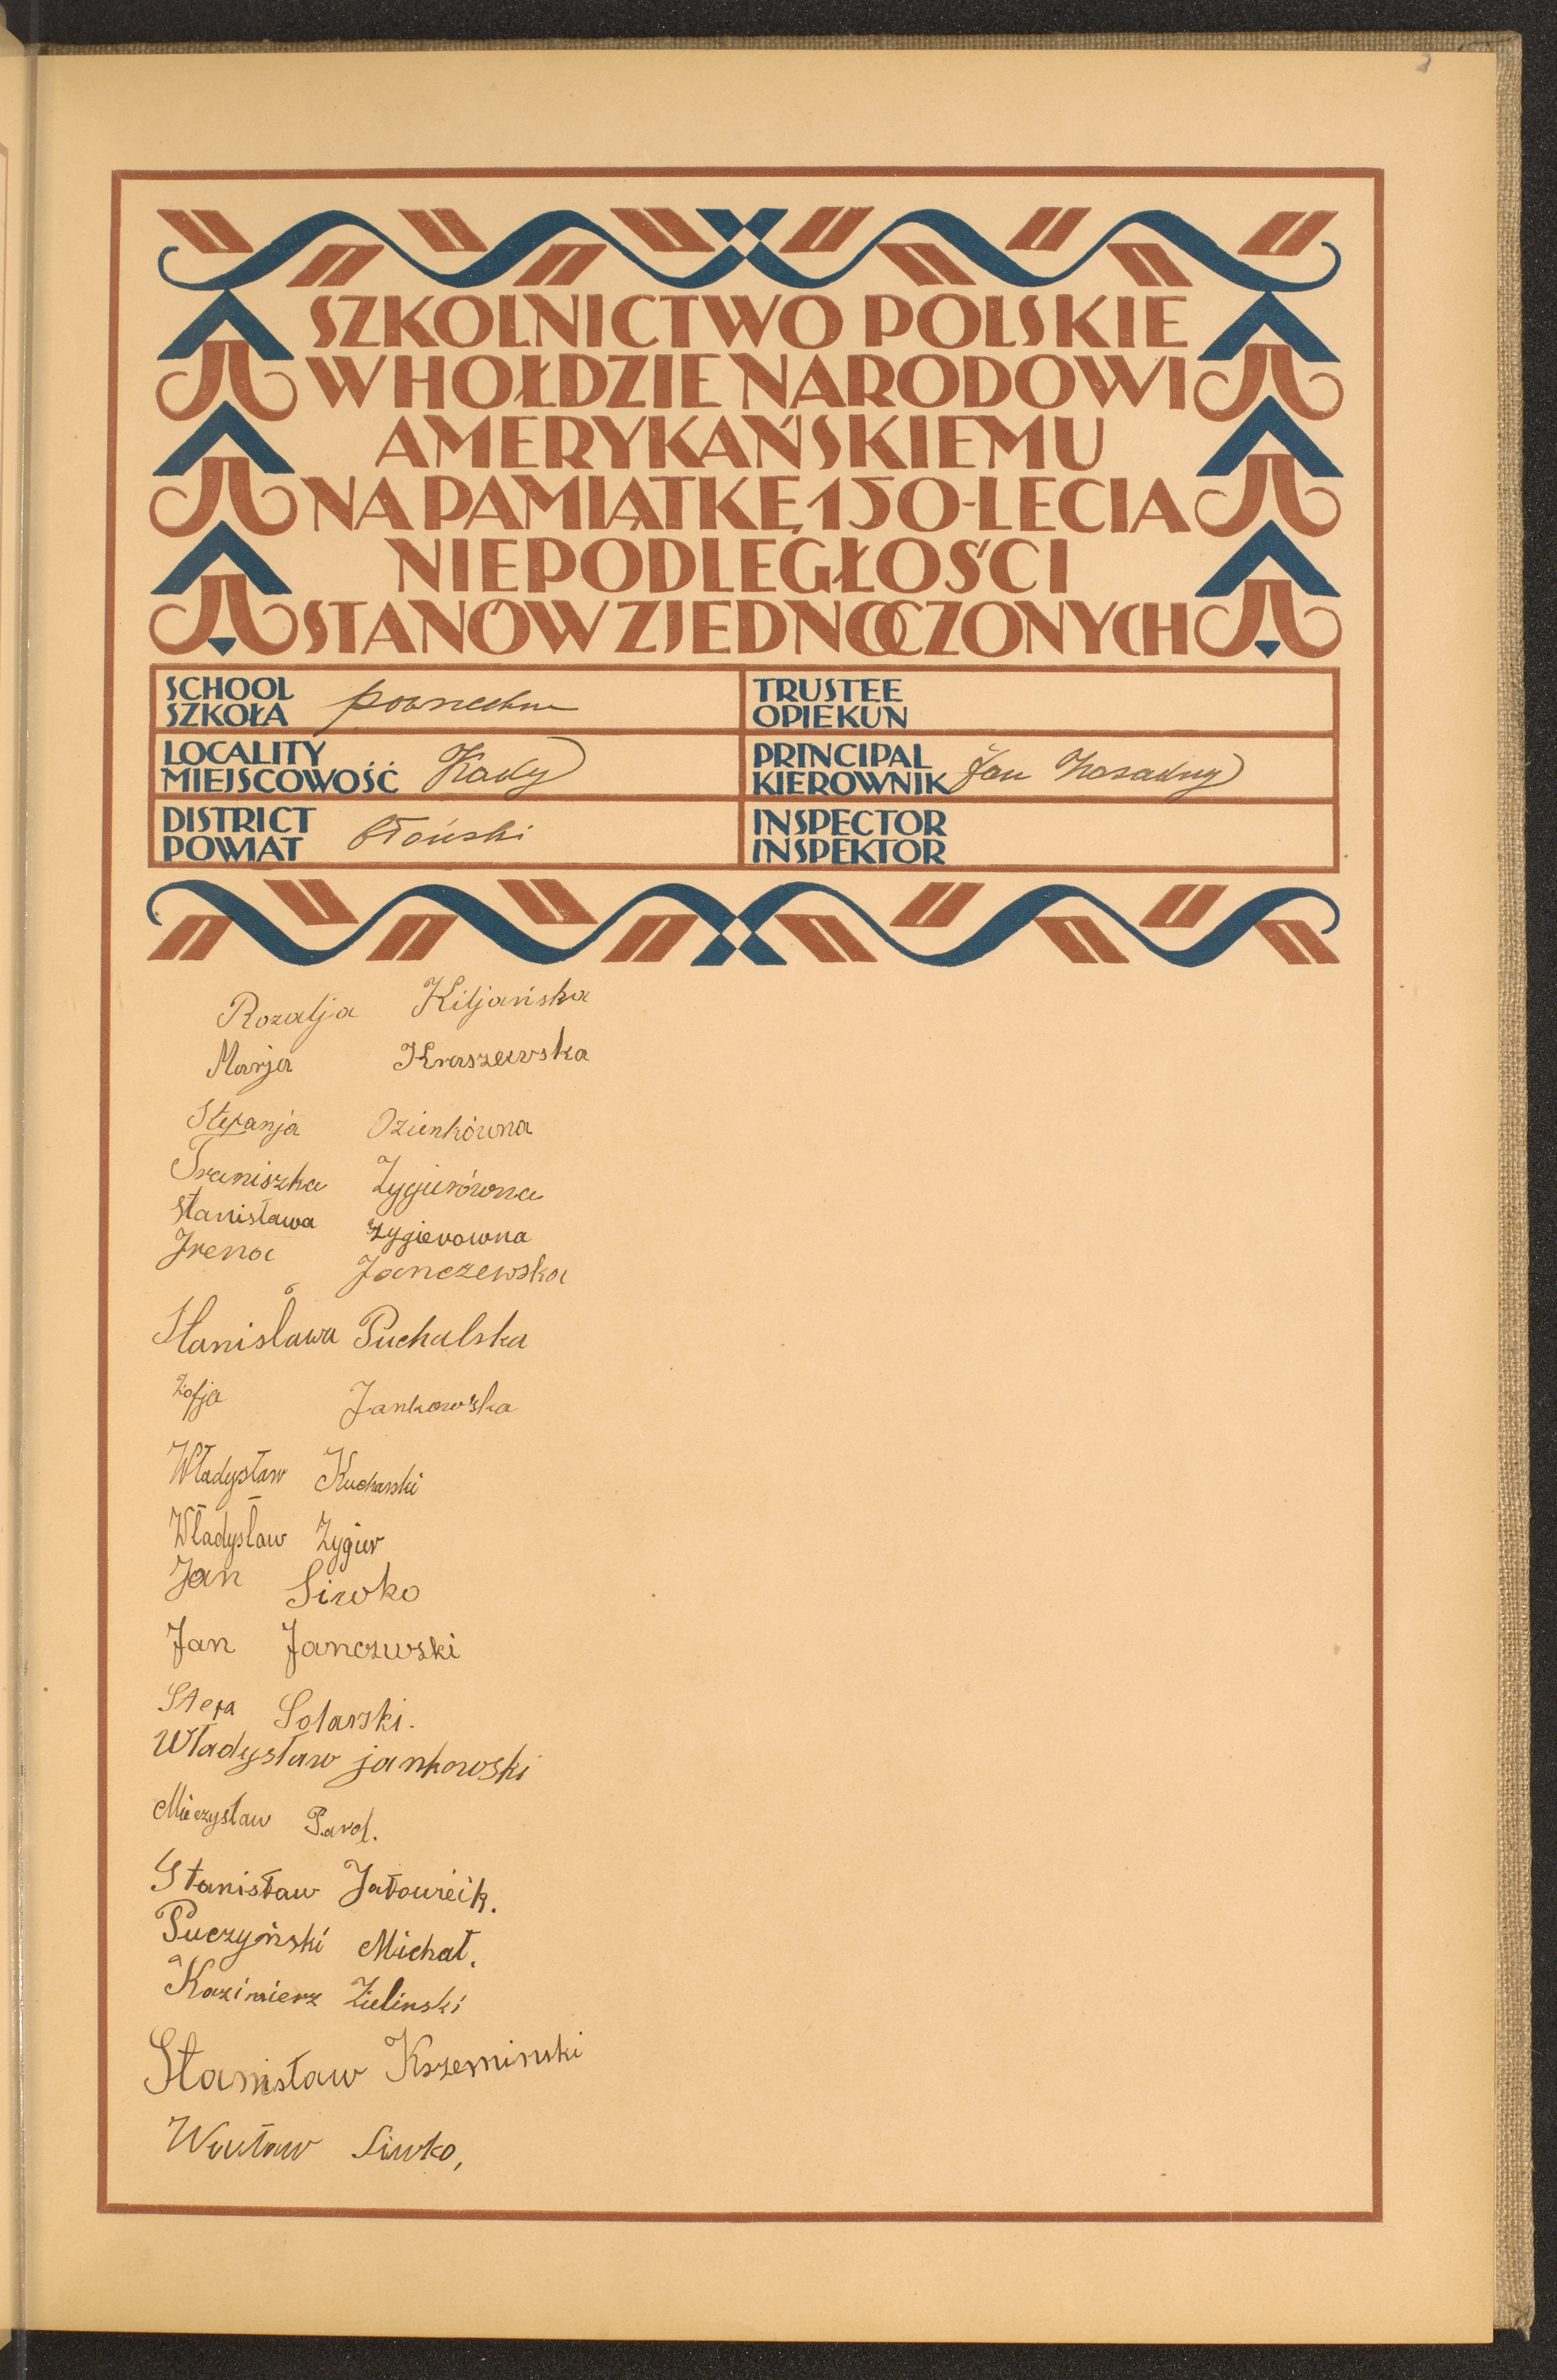 SZKOLNICTWO POLSKIE
W HOŁDZIE NARODOWI
AMERYKAŃSKIEMU
NA PAMIĄTKĘ 150-LECIA
NIEPODLEGŁOŚCI
STANÓW ZJEDNOCZONYCH
SCHOOL
SZKOŁA powszechna
TRUSTEE
OPIEKUN
LOCALITY
MIEJSCOWOŚĆ Kady
PRINCIPAL
KIEROWNIK Jan Zasadny
DISTRICT
POWIAT błoński
INSPECTOR
INSPEKTOR
Rozalja Kiljańska
Marja Kraszewska
Stefanja Ozienkówna
Franiszka Zygierówna
Stanisława Zygierowna
Irena Janczewska
Stanisława Puchalska
Zofja Jankowska
Władysław Kucharski
Władysław Zygier
Jan Siwko
Jan Janczwski
Stefa Solarski.
Władysław jankowski
Mieczysław Parol.
Stanisław Jatowcik.
Puczyński Michał.
Kazimierz Zielinski
Stanisław Krzeminski
Wacław Siwko,